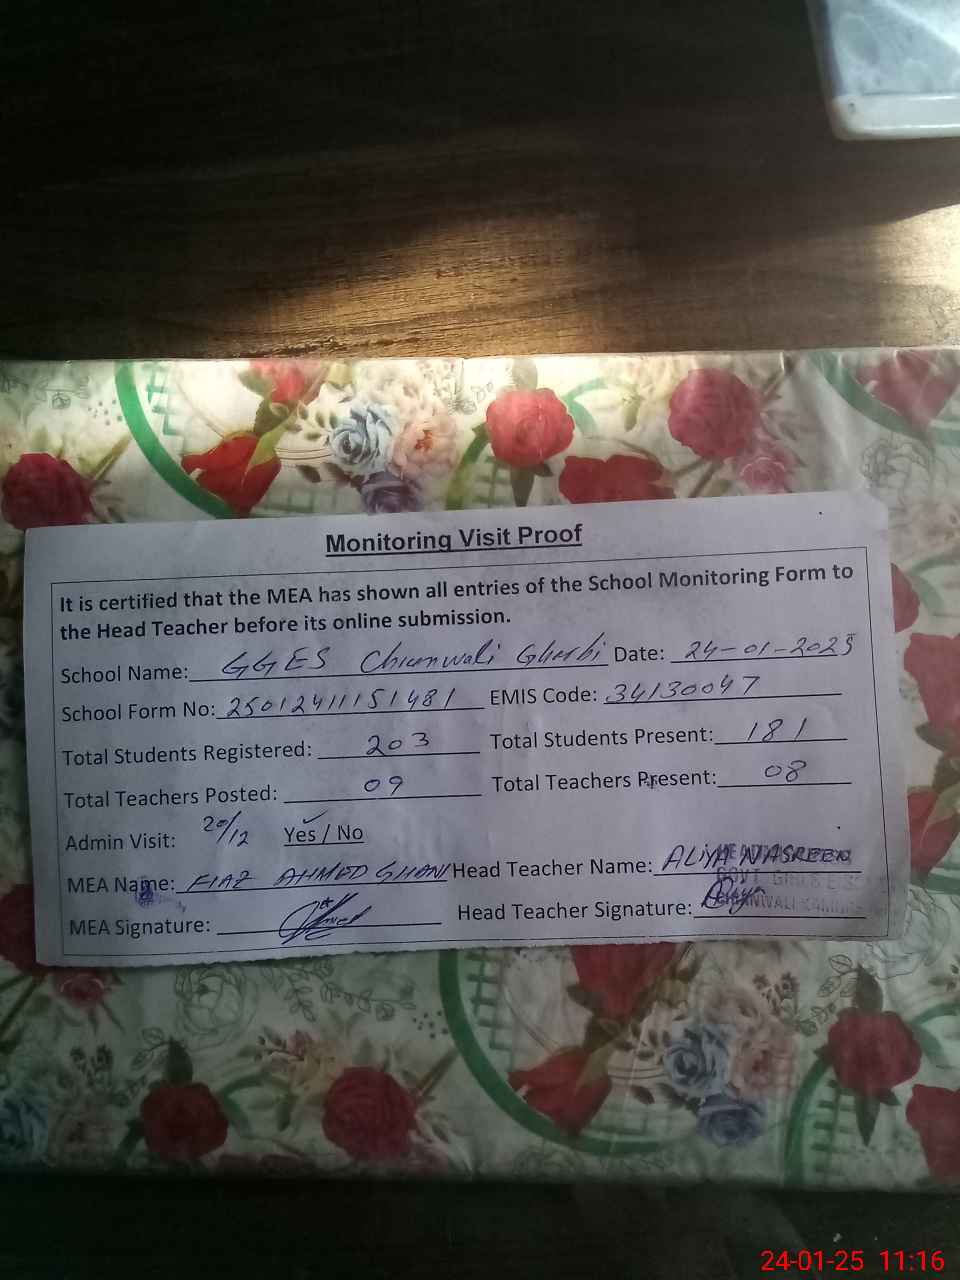 Monitoring Visit Proof
It is certified that the MEA has shown all entries of the School Monitoring Form to
the Head Teacher before its online submission.
School Name: GGES Chianwali Gharbi Date: 24-01-2025
School Form No: 25012411151481 EMIS Code: 34130047
Total Students Registered: 203 Total Students Present: 181
Total Teachers Posted: 09 Total Teachers Present: 08
Admin Visit: 20/12 Yes / No
MEA Name: FIAZ AHMED GHANI Head Teacher Name: ALIYA NASREEN
MEA Signature: Head Teacher Signature:
GOVT. GIRLS
24-01-25 11:16